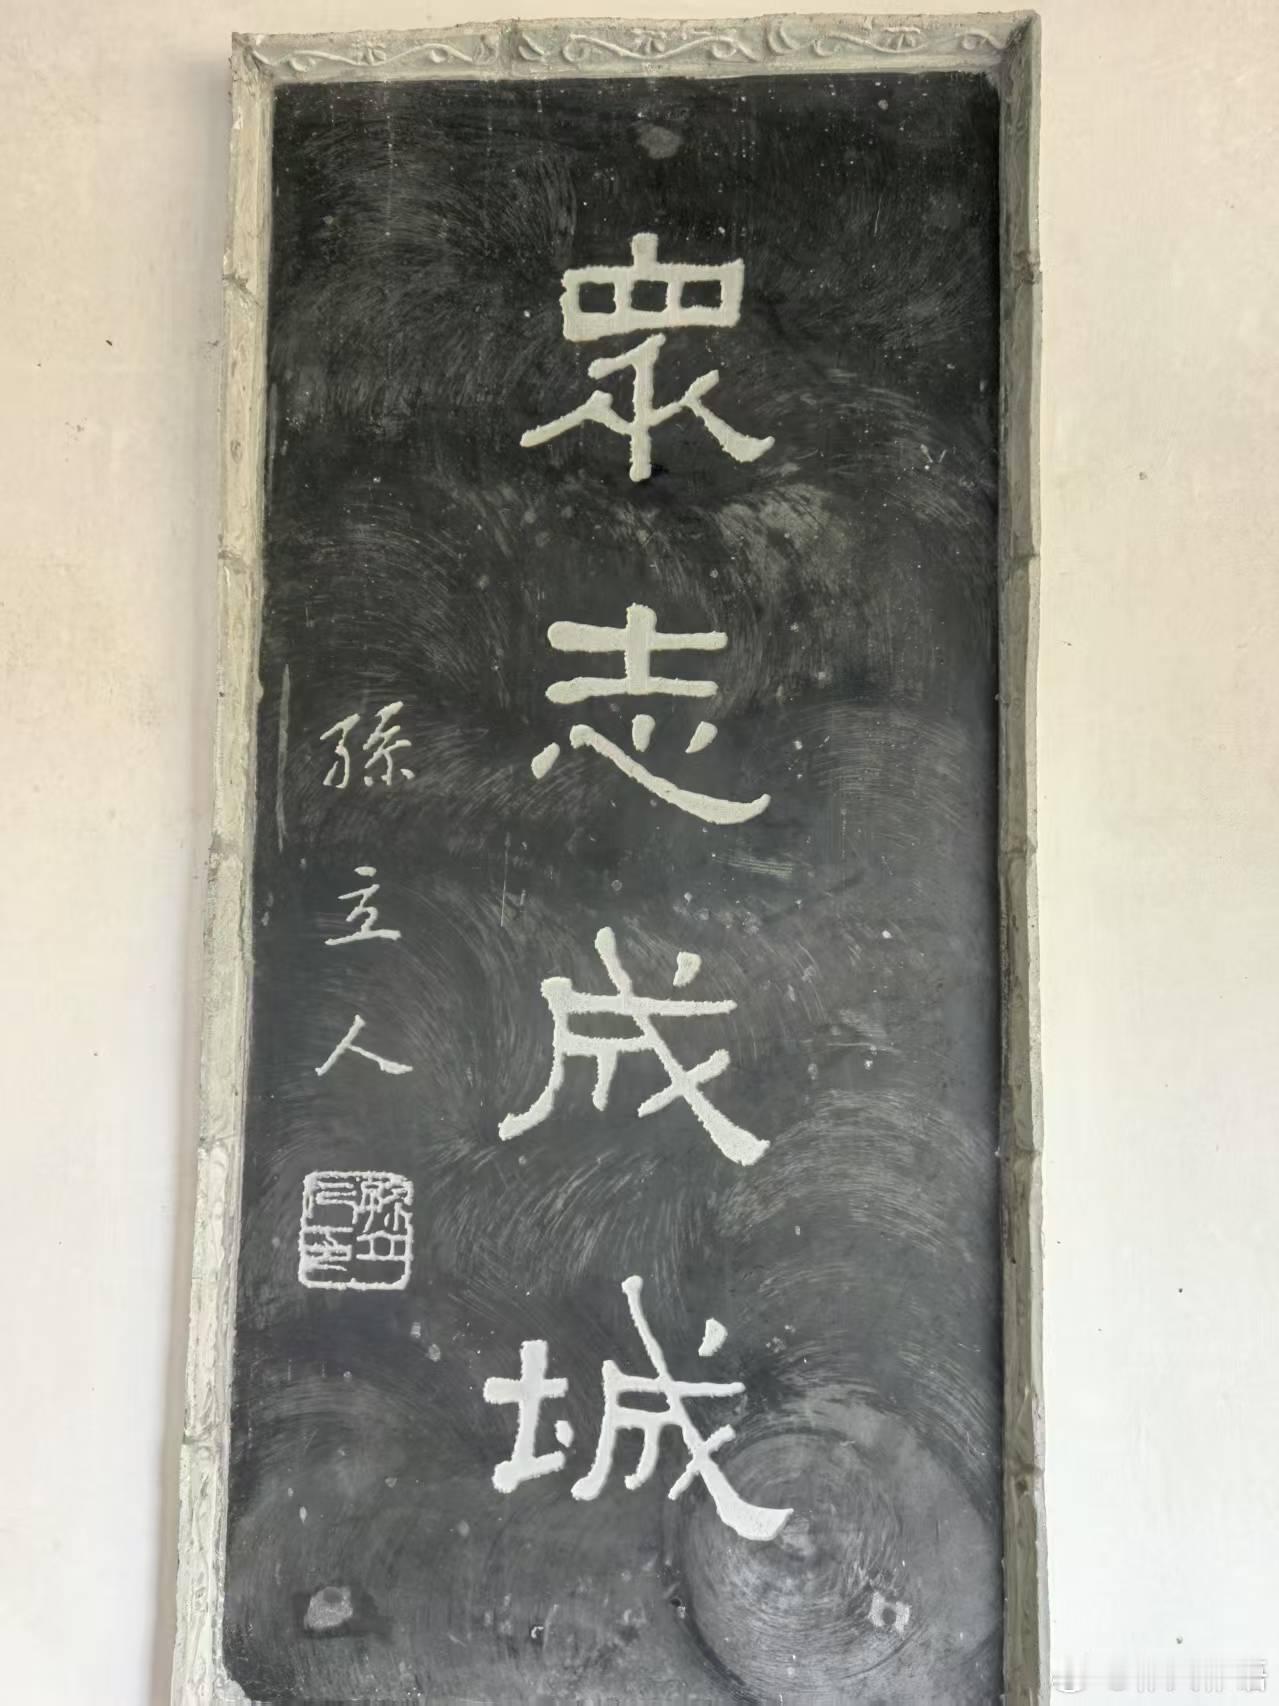 眾志成城
孫立人
孫立人印